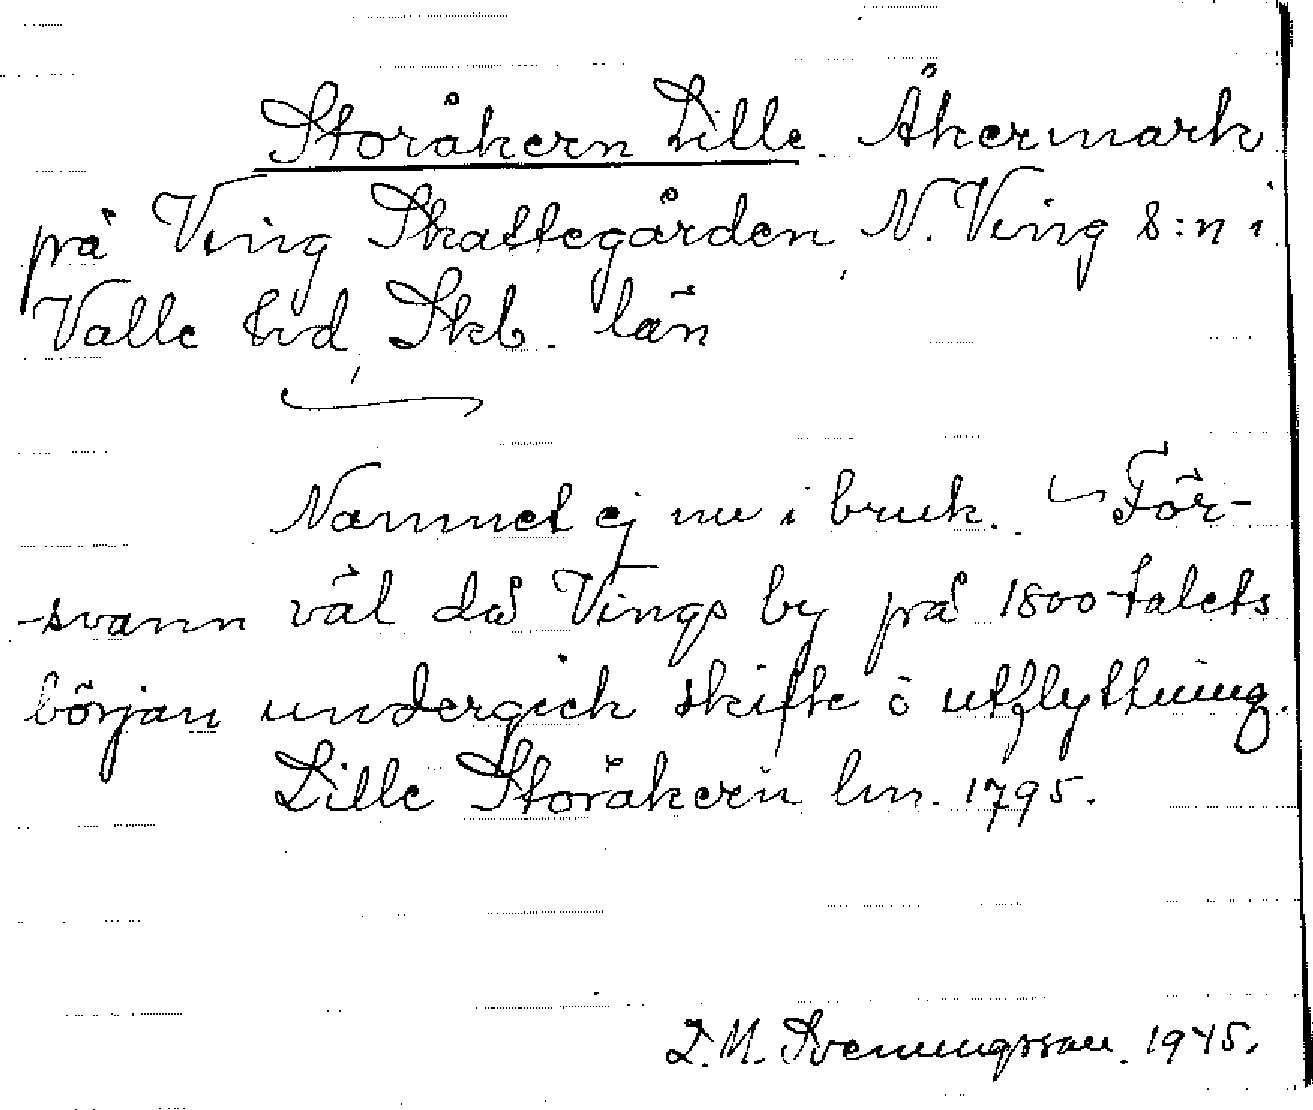 Storåkern Lille. Åkermark
på Ving Skattegården N. Ving s:n i
Valle hd, Skb. län
Namnet ej nu i bruk. – För-
svann väl då Vings by på 1800-talets
början undergick skifte o utflyttning.
Lille Storåkern lm. 1795.
L. M. Svenungsson. 1945.